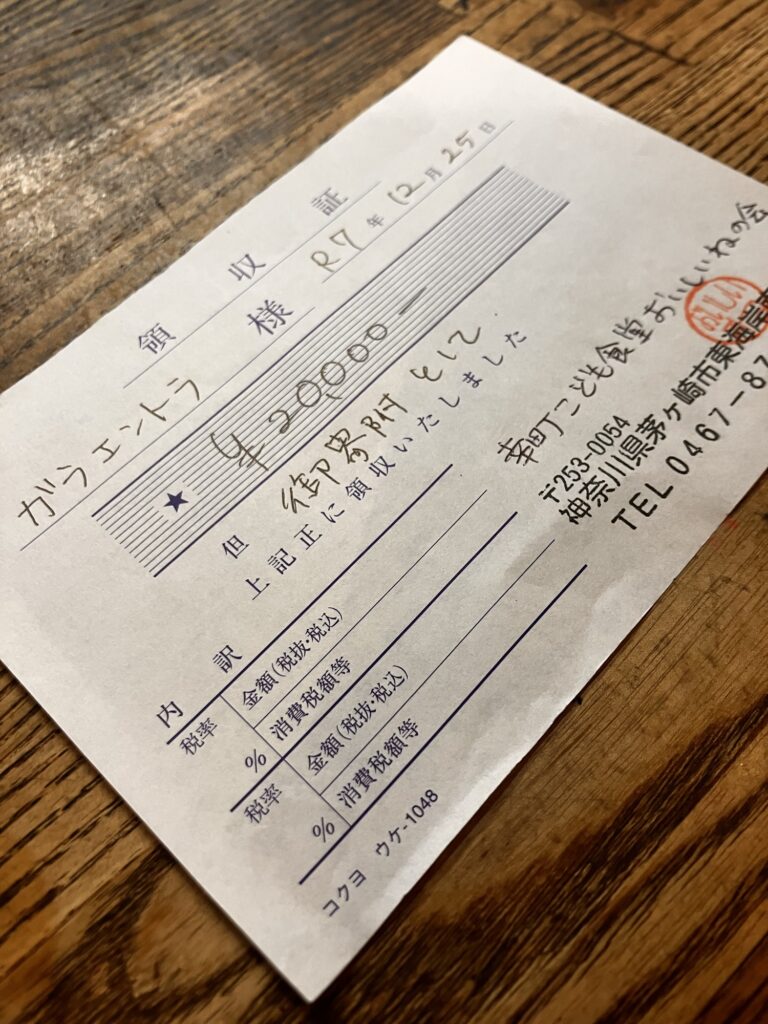 領収証
R7年 12月 25日
ガラエントラ 様
★ ¥20,000—
但 御寄附として
上記正に領収いたしました
幸町こども食堂おいしいねの会
おいしい
〒253-0054
神奈川県茅ヶ崎市東海岸
TEL 0467-87
内訳
税率 % 金額(税抜・税込)
消費税額等
税率 % 金額(税抜・税込)
消費税額等
コクヨ ウケ-1048